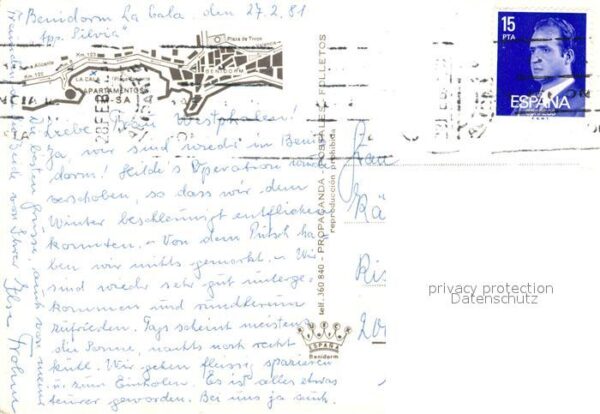 Benidorm La Cala den 27.2.81
Aps. Silvia
Plaza de Toros
Km. 123
Km. 122
LA CALA
BENIDORM
APARTAMENTOS
S-A
15
PTA
ESPAÑA
28 FEB
Liebe Frau Westphalen!
Ja, wir sind wieder in Beni-
dorm! Hilde's Operation wurde
verschoben, so dass wir dem
Winter beschleunigt entfliehen
konnten. - Von dem Putsch ha-
ben wir nichts gemerkt. - Wir
sind wieder sehr gut unterge-
kommen und rundherum
zufrieden. Tags scheint meistens
die Sonne, nachts noch recht
kühl. Wir gehen fleissig spazieren
u. zum Einholen. Es ist alles etwas
teurer geworden. Bei uns ja auch.
Die besten Grüsse, auch von meiner
Freundin
Ihrer Ilse Frohm
telf. 360 840 - PROPAGANDA - POSTALES - FOLLETOS
reproducción prohibida
ESPAÑA
Benidorm
Frau
Rä
Ris
20
privacy protection
Datenschutz